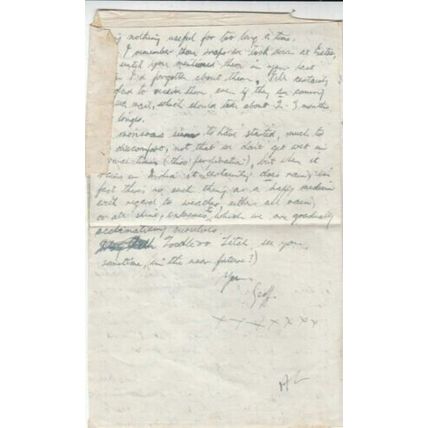 nothing useful for too long a time.
I remember those snaps we took down at
until you mentioned them in your last
I'd forgotten about them, I'll certainly
to receive them, even if they are coming
mail, which should take about 2-3 months
longer.
monsoons seem to have started, much to
discomfort, not that we don't get wet in
(thro' perspiration), but when it
rains in India it certainly does rain, in
fact there's no such thing as a happy medium
with regard to weather, either all rain,
or all shine, extremes, which we are gradually
acclimatising ourselves.
see you
sometime, (in the near future?)
Yours
Geoff.
x x x x x x x